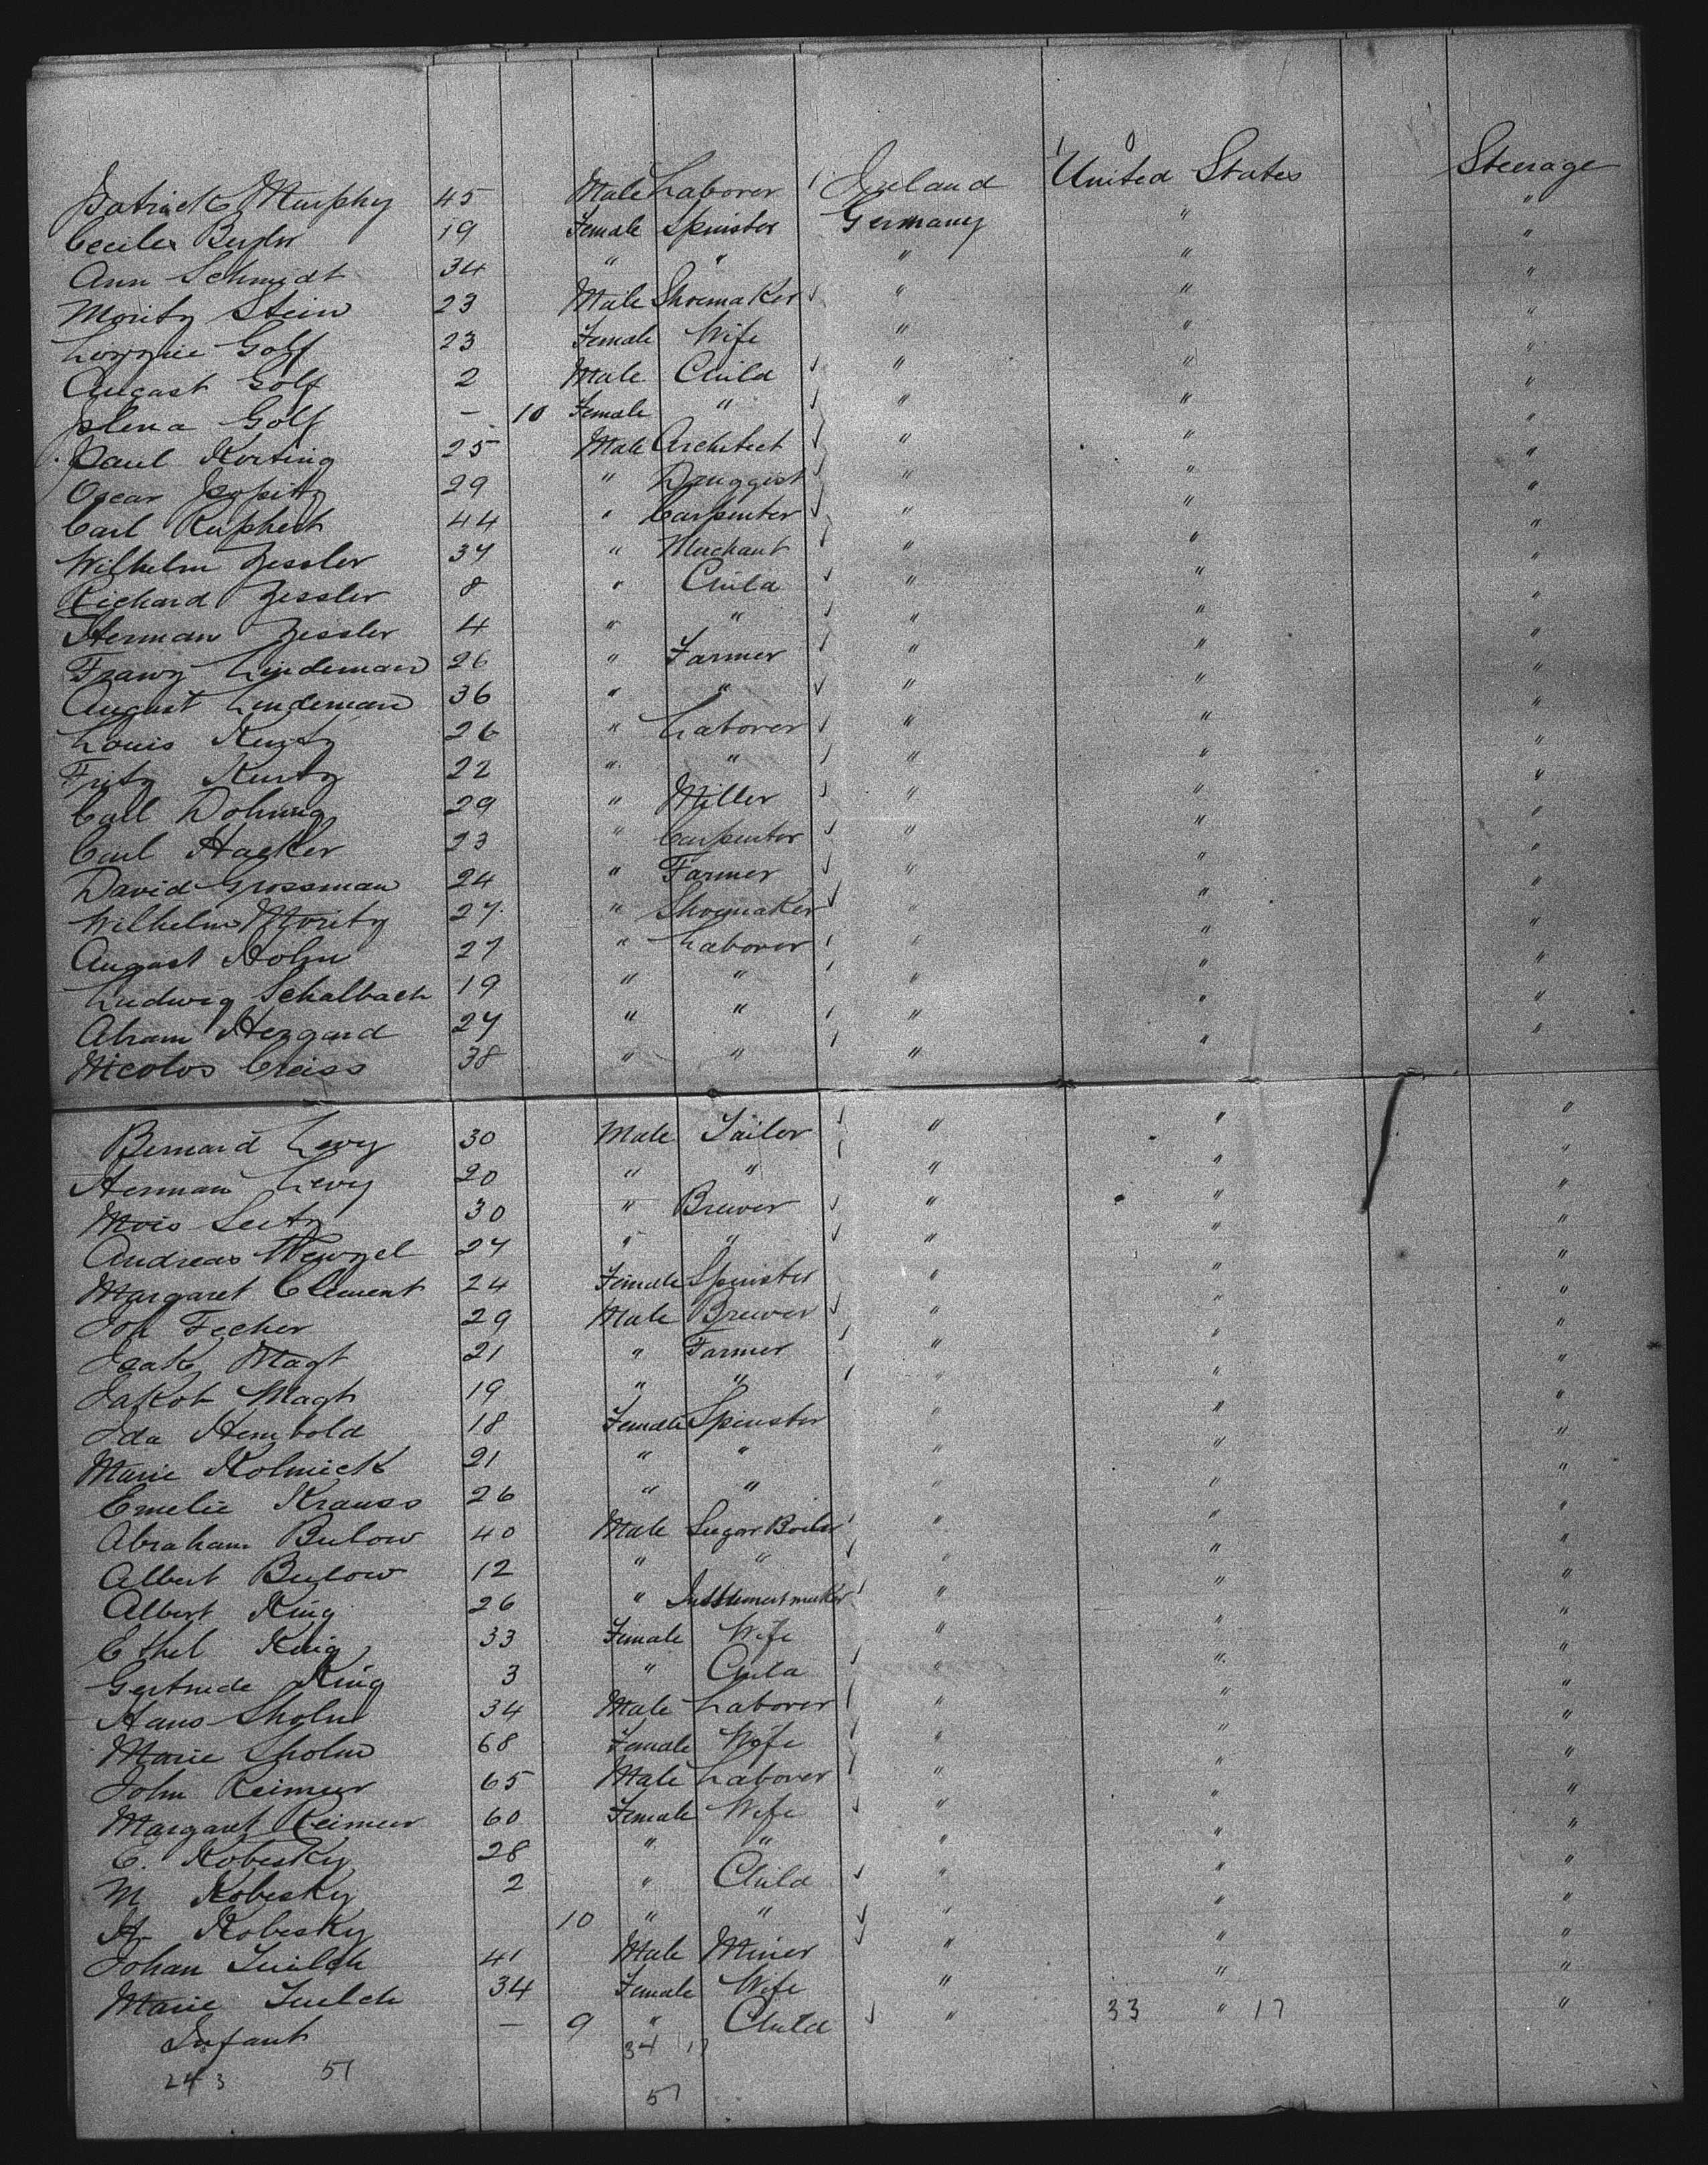 Patrick Murphy 45 Male Laborer Ireland United States Steerage
Female Spinster Germany " "
Ann Schmidt 34 " " " " "
Moritz Stein 23 Male Shoemaker " " "
Golf 23 Female Wife " " "
August Golf 2 Male Child " " "
Golf — 10 Female " " " "
Paul Korting 25 Male Architect " " "
Oscar 29 " Druggist " " "
Carl 44 " Carpenter " " "
Wilhelm Zessler 37 " Merchant " " "
Richard Zessler 8 " Child " " "
Herman Zessler 4 " " " " "
Franz Lindeman 26 " Farmer " " "
August Lindeman 36 " " " " "
Louis Kurtz 26 " Laborer " " "
Fritz Kurtz 22 " " " " "
Carl Dohring 29 " Miller " " "
Carl Hacker 23 " Carpenter " " "
David Grossman 24 " Farmer " " "
Wilhelm Moritz 27 " Shoemaker " " "
August 27 " Laborer " " "
Ludwig Schalbach 19 " " " " "
Abram 27 " " " " "
Nicolos 38 " " " " "
Bernard Levy 30 Male Tailor " " "
Herman Levy 20 " " " " "
30 " Brewer " " "
Andreas Wenzel 27 " " " " "
Margaret Clement 24 Female Spinster " " "
Joh Fecher 29 Male Brewer " " "
Isak Magt 21 " Farmer " " "
Jakob Magt 19 " " " " "
Ida Hembold 18 Female Spinster " " "
Marie Kolmick 21 " " " " "
Emelie Krauss 26 " " " " "
Abraham Bulow 40 Male Sugar Boiler " " "
Albert Bulow 12 " " " " "
Albert King 26 " " " "
Ethel King 33 Female Wife " " "
Gertrude King 3 " Child " " "
Hans Sholm 34 Male Laborer " " "
Marie Sholm 68 Female Wife " " "
John Reimer 65 Male Laborer " " "
Margaret Reimer 60 Female Wife " " "
C. Kobesky 28 " " " " "
M Kobesky 2 " Child " " "
H Kobesky 10 " " " " "
Johan 41 Male Miner " " "
Marie 34 Female Wife " " "
Infant — 9 " Child " 33 " 17 "
34 17
24 3 51
51